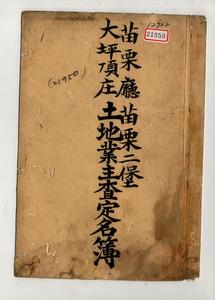 12762
21950
苗栗廳苗栗二堡
大坪頂庄土地業主查定名簿
(21950)